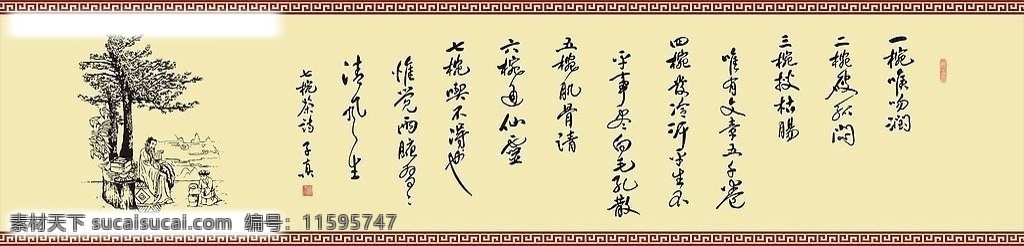 一椀喉吻润
二椀破孤闷
三椀搜枯腸
唯有文章五千卷
四椀发冷汗平生不
平事尽向毛孔散
五椀肌骨清
六椀通仙灵
七椀喫不得也
惟觉两腋習〻
清风生
七椀茶诗 子真
素材天下 sucaisucai.com 编号：11595747